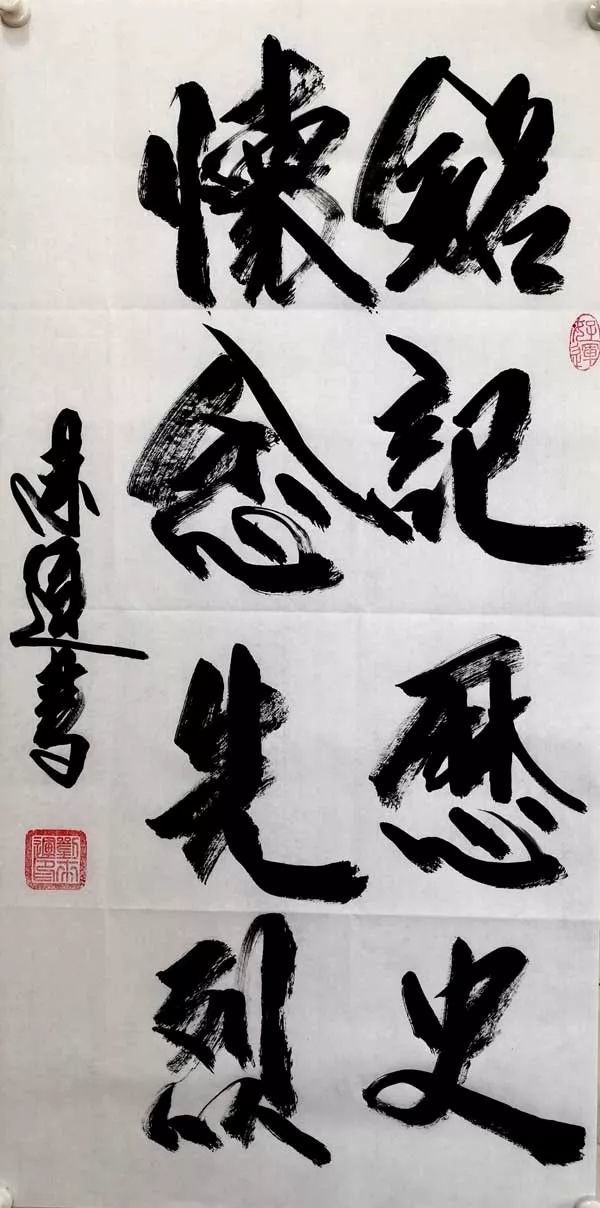 銘記歷史
懷念先烈
好運